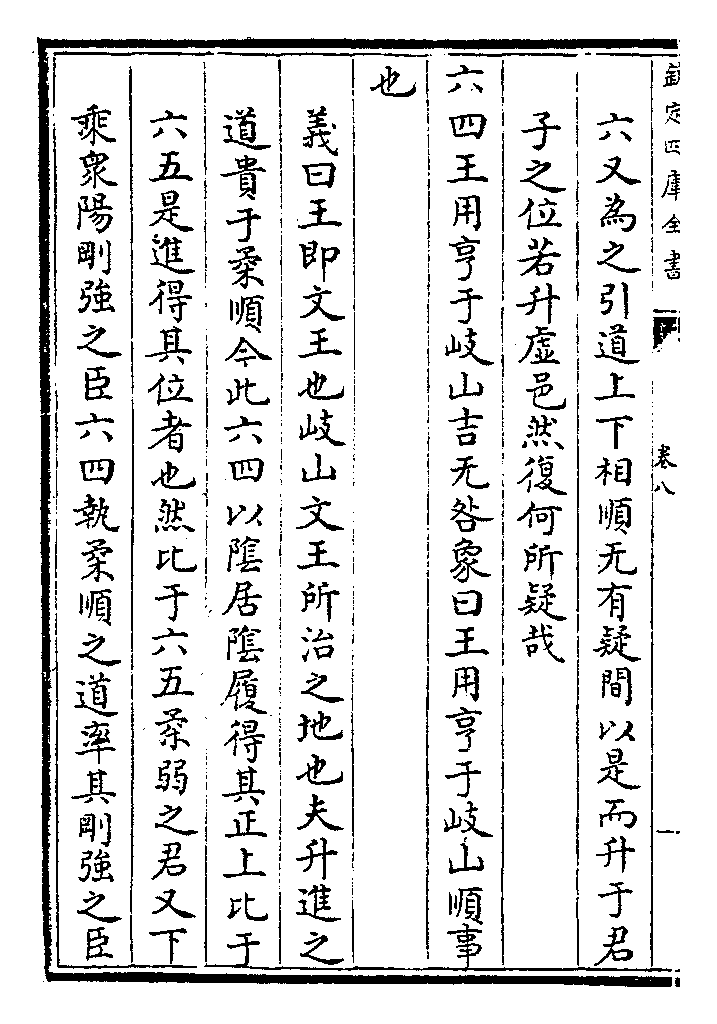 欽定四庫全書
卷八
六又為之引道上下相順无有疑間以是而升于君
子之位若升虛邑然復何所疑哉
六四王用亨于岐山吉无咎象曰王用亨于岐山順事
也
義曰王即文王也岐山文王所治之地也夫升進之
道貴于柔順今此六四以隂居隂履得其正上比于
六五是進得其位者也然比于六五柔弱之君又下
乘衆陽剛強之臣六四執柔順之道率其剛強之臣